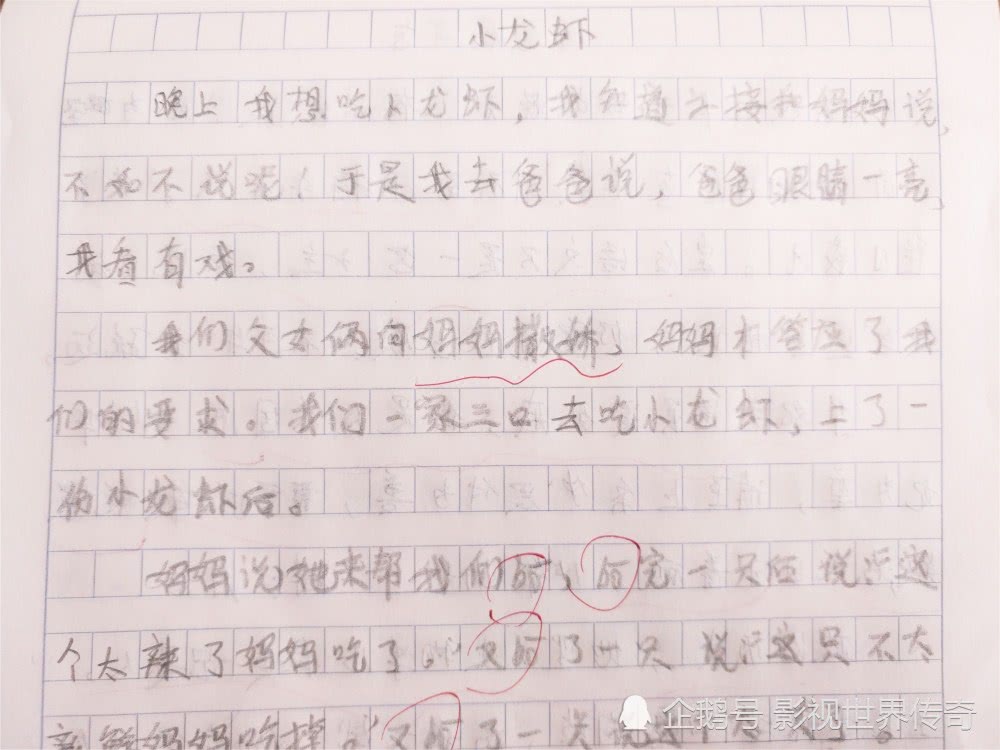 小龙虾
晚上我想吃小龙虾，我知道直接和妈妈说，
不如不说呢！于是我去爸爸说，爸爸眼睛一亮，
我看有戏。
我们父女俩向妈妈撒娇，妈妈才答应了我
们的要求。我们一家三口去吃小龙虾，上了一
份小龙虾后。
妈妈说她来帮我们，完一只后说：“这
个太辣了妈妈吃了。”又了一只说：“这只不太
妈妈吃掉。”又了一只说
企鹅号 影视世界传奇